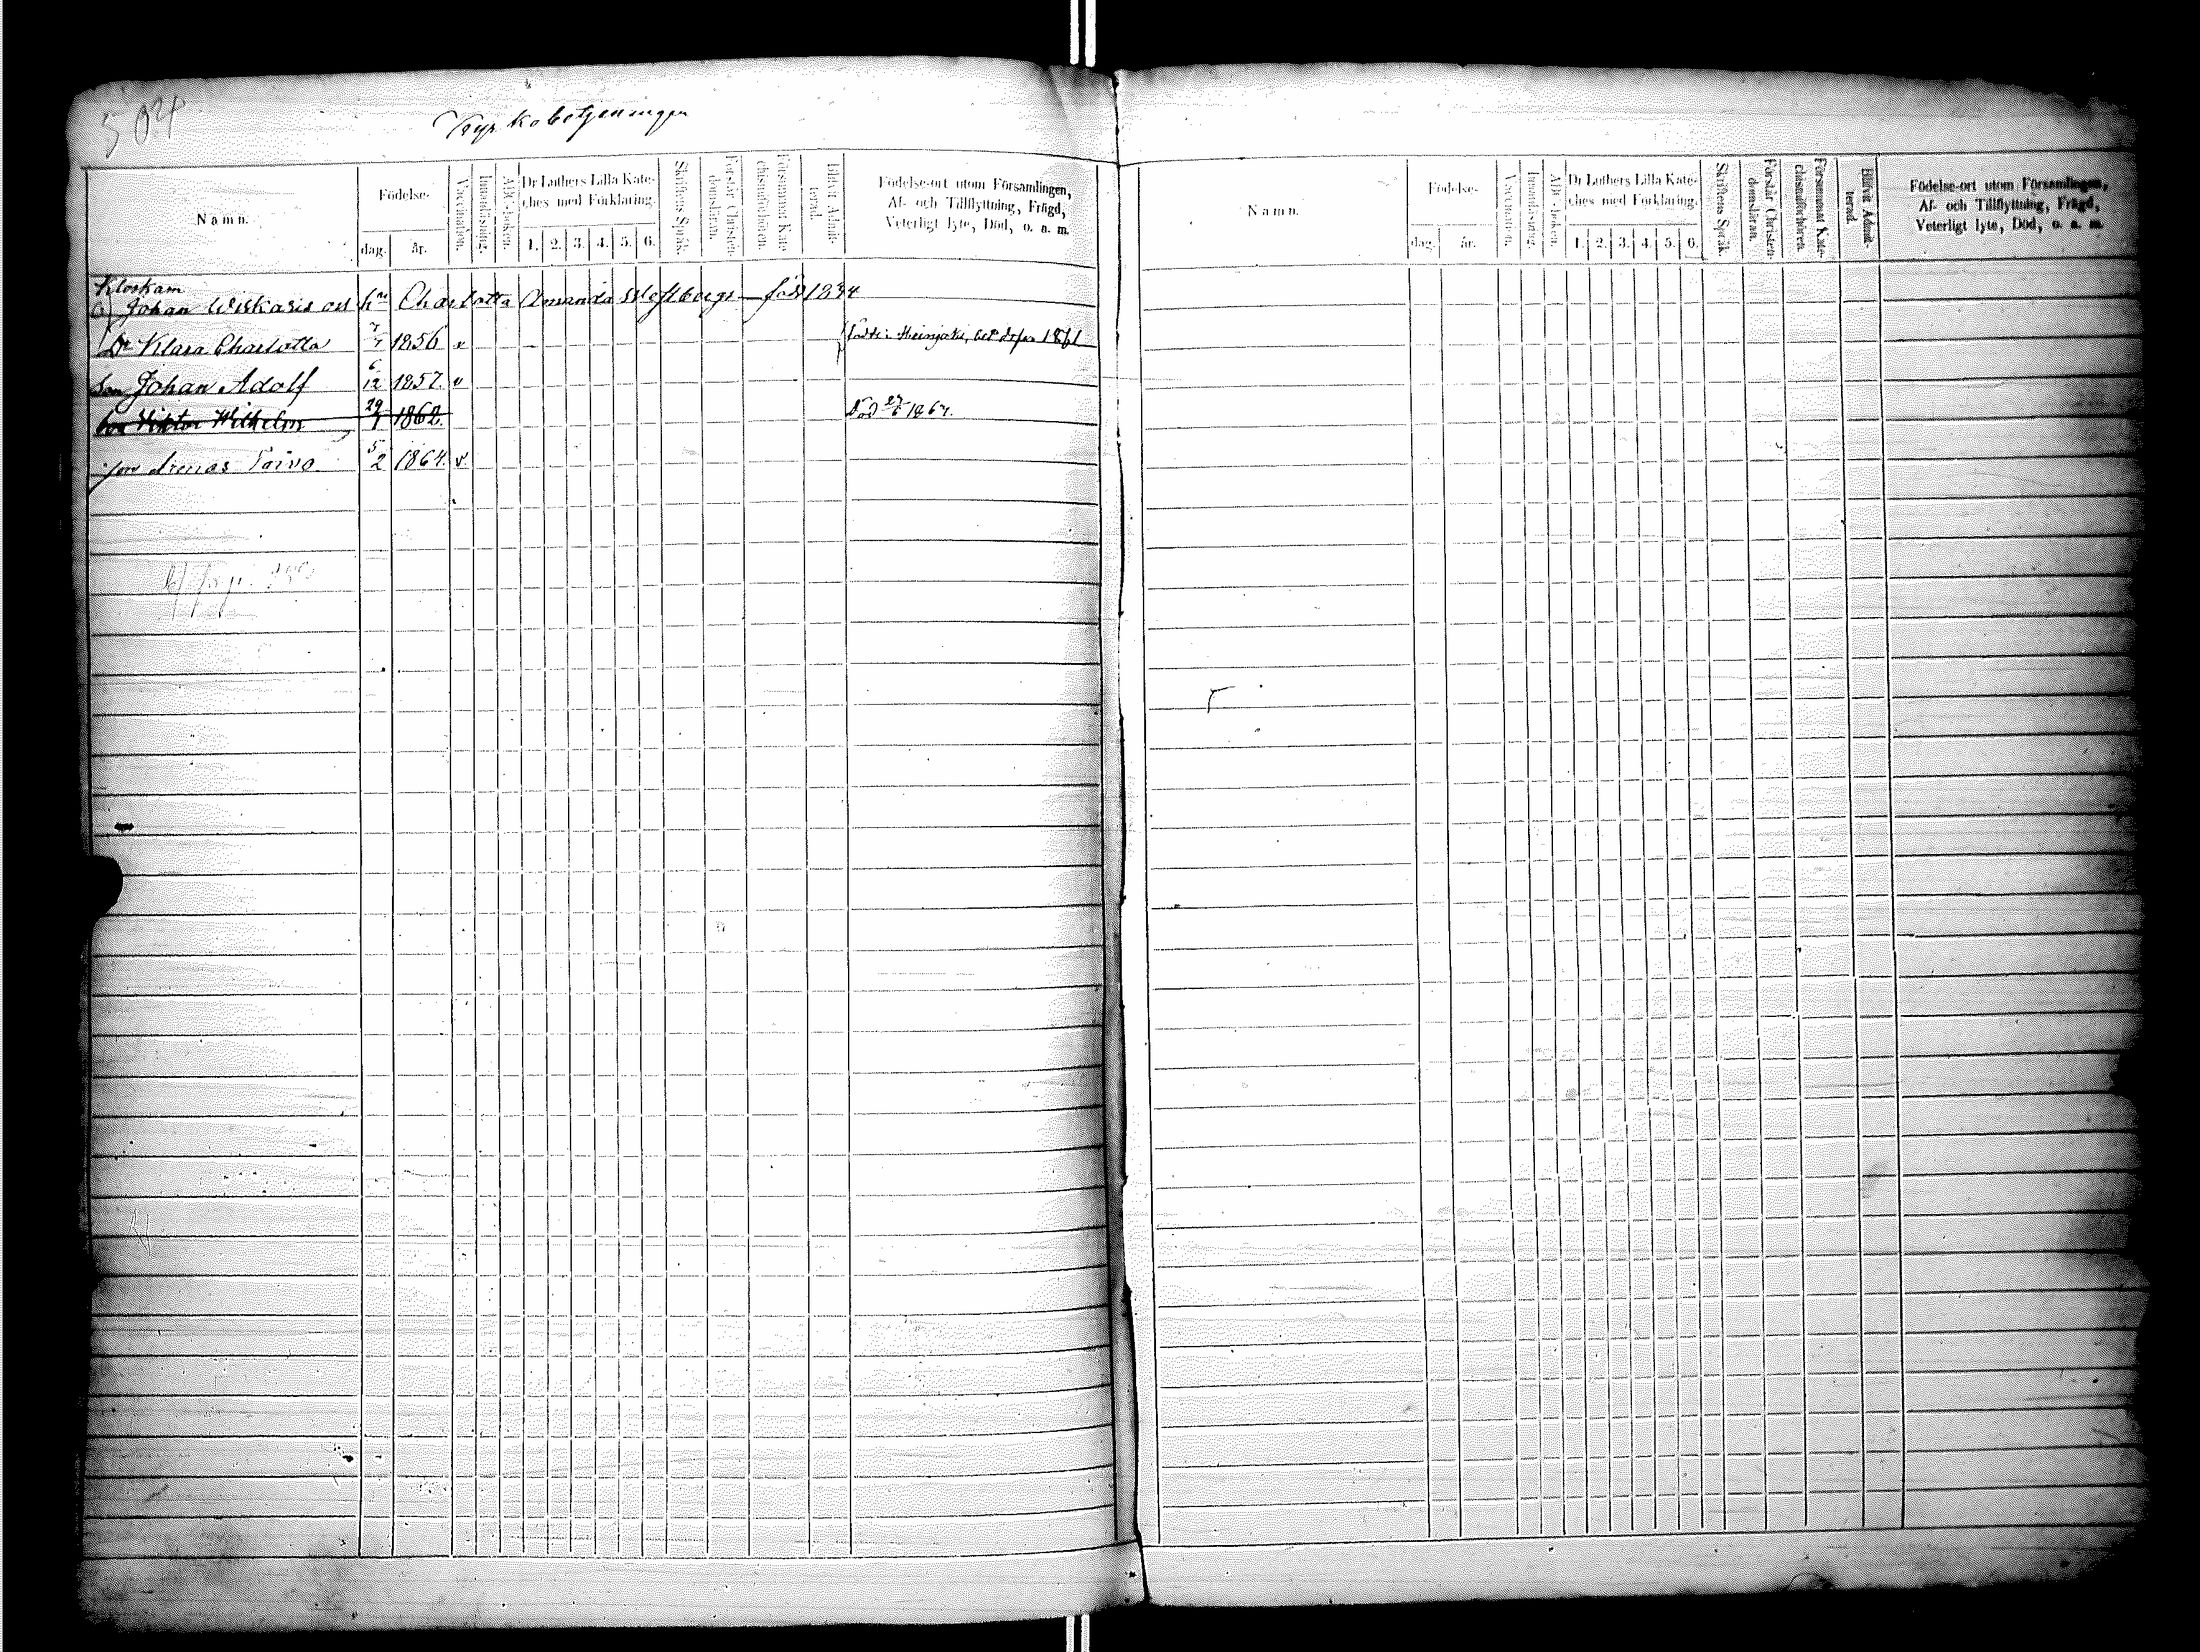 504
Kyrkobetjeningen
Namn.
Födelse-
dag.
år.
Vaccination.
Innanläsning.
ABC-boken.
Dr Luthers Lilla Kate-
ches med Förklaring.
1. 2. 3. 4. 5. 6.
Skriftens Språk.
Förstår Christen-
domsläran.
Försummat Kate-
chismiförhören.
Blifvit Admit-
terad.
Födelse-ort utom Församlingen,
Af- och Tillflyttning, Frägd,
Veterligt lyte, Död, o. a. m.
Klockarn
Johan Charlotta Amanda född 1834
Dr Klara Charlotta 7/7 1856 v född i Heinjoki, 1861
Son Johan Adolf 6/12 1857. v
Son Viktor Wilhelm 29/1 1862. Död 27/6 1867.
Son Toivo 5/2 1864. v.
Namn.
Födelse-
dag.
år.
Vaccination.
Innanläsning.
ABC-boken.
Dr Luthers Lilla Kate-
ches med Förklaring.
1. 2. 3. 4. 5. 6.
Skriftens Språk.
Förstår Christen-
domsläran.
Försummat Kate-
chismiförhören.
Blifvit Admit-
terad.
Födelse-ort utom Församlingen,
Af- och Tillflyttning, Frägd,
Veterligt lyte, Död, o. a. m.